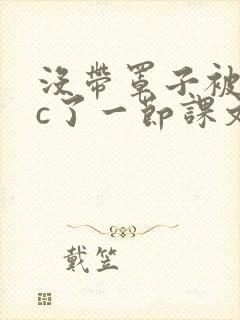 没带罩子被
c了一节课文
戴笠